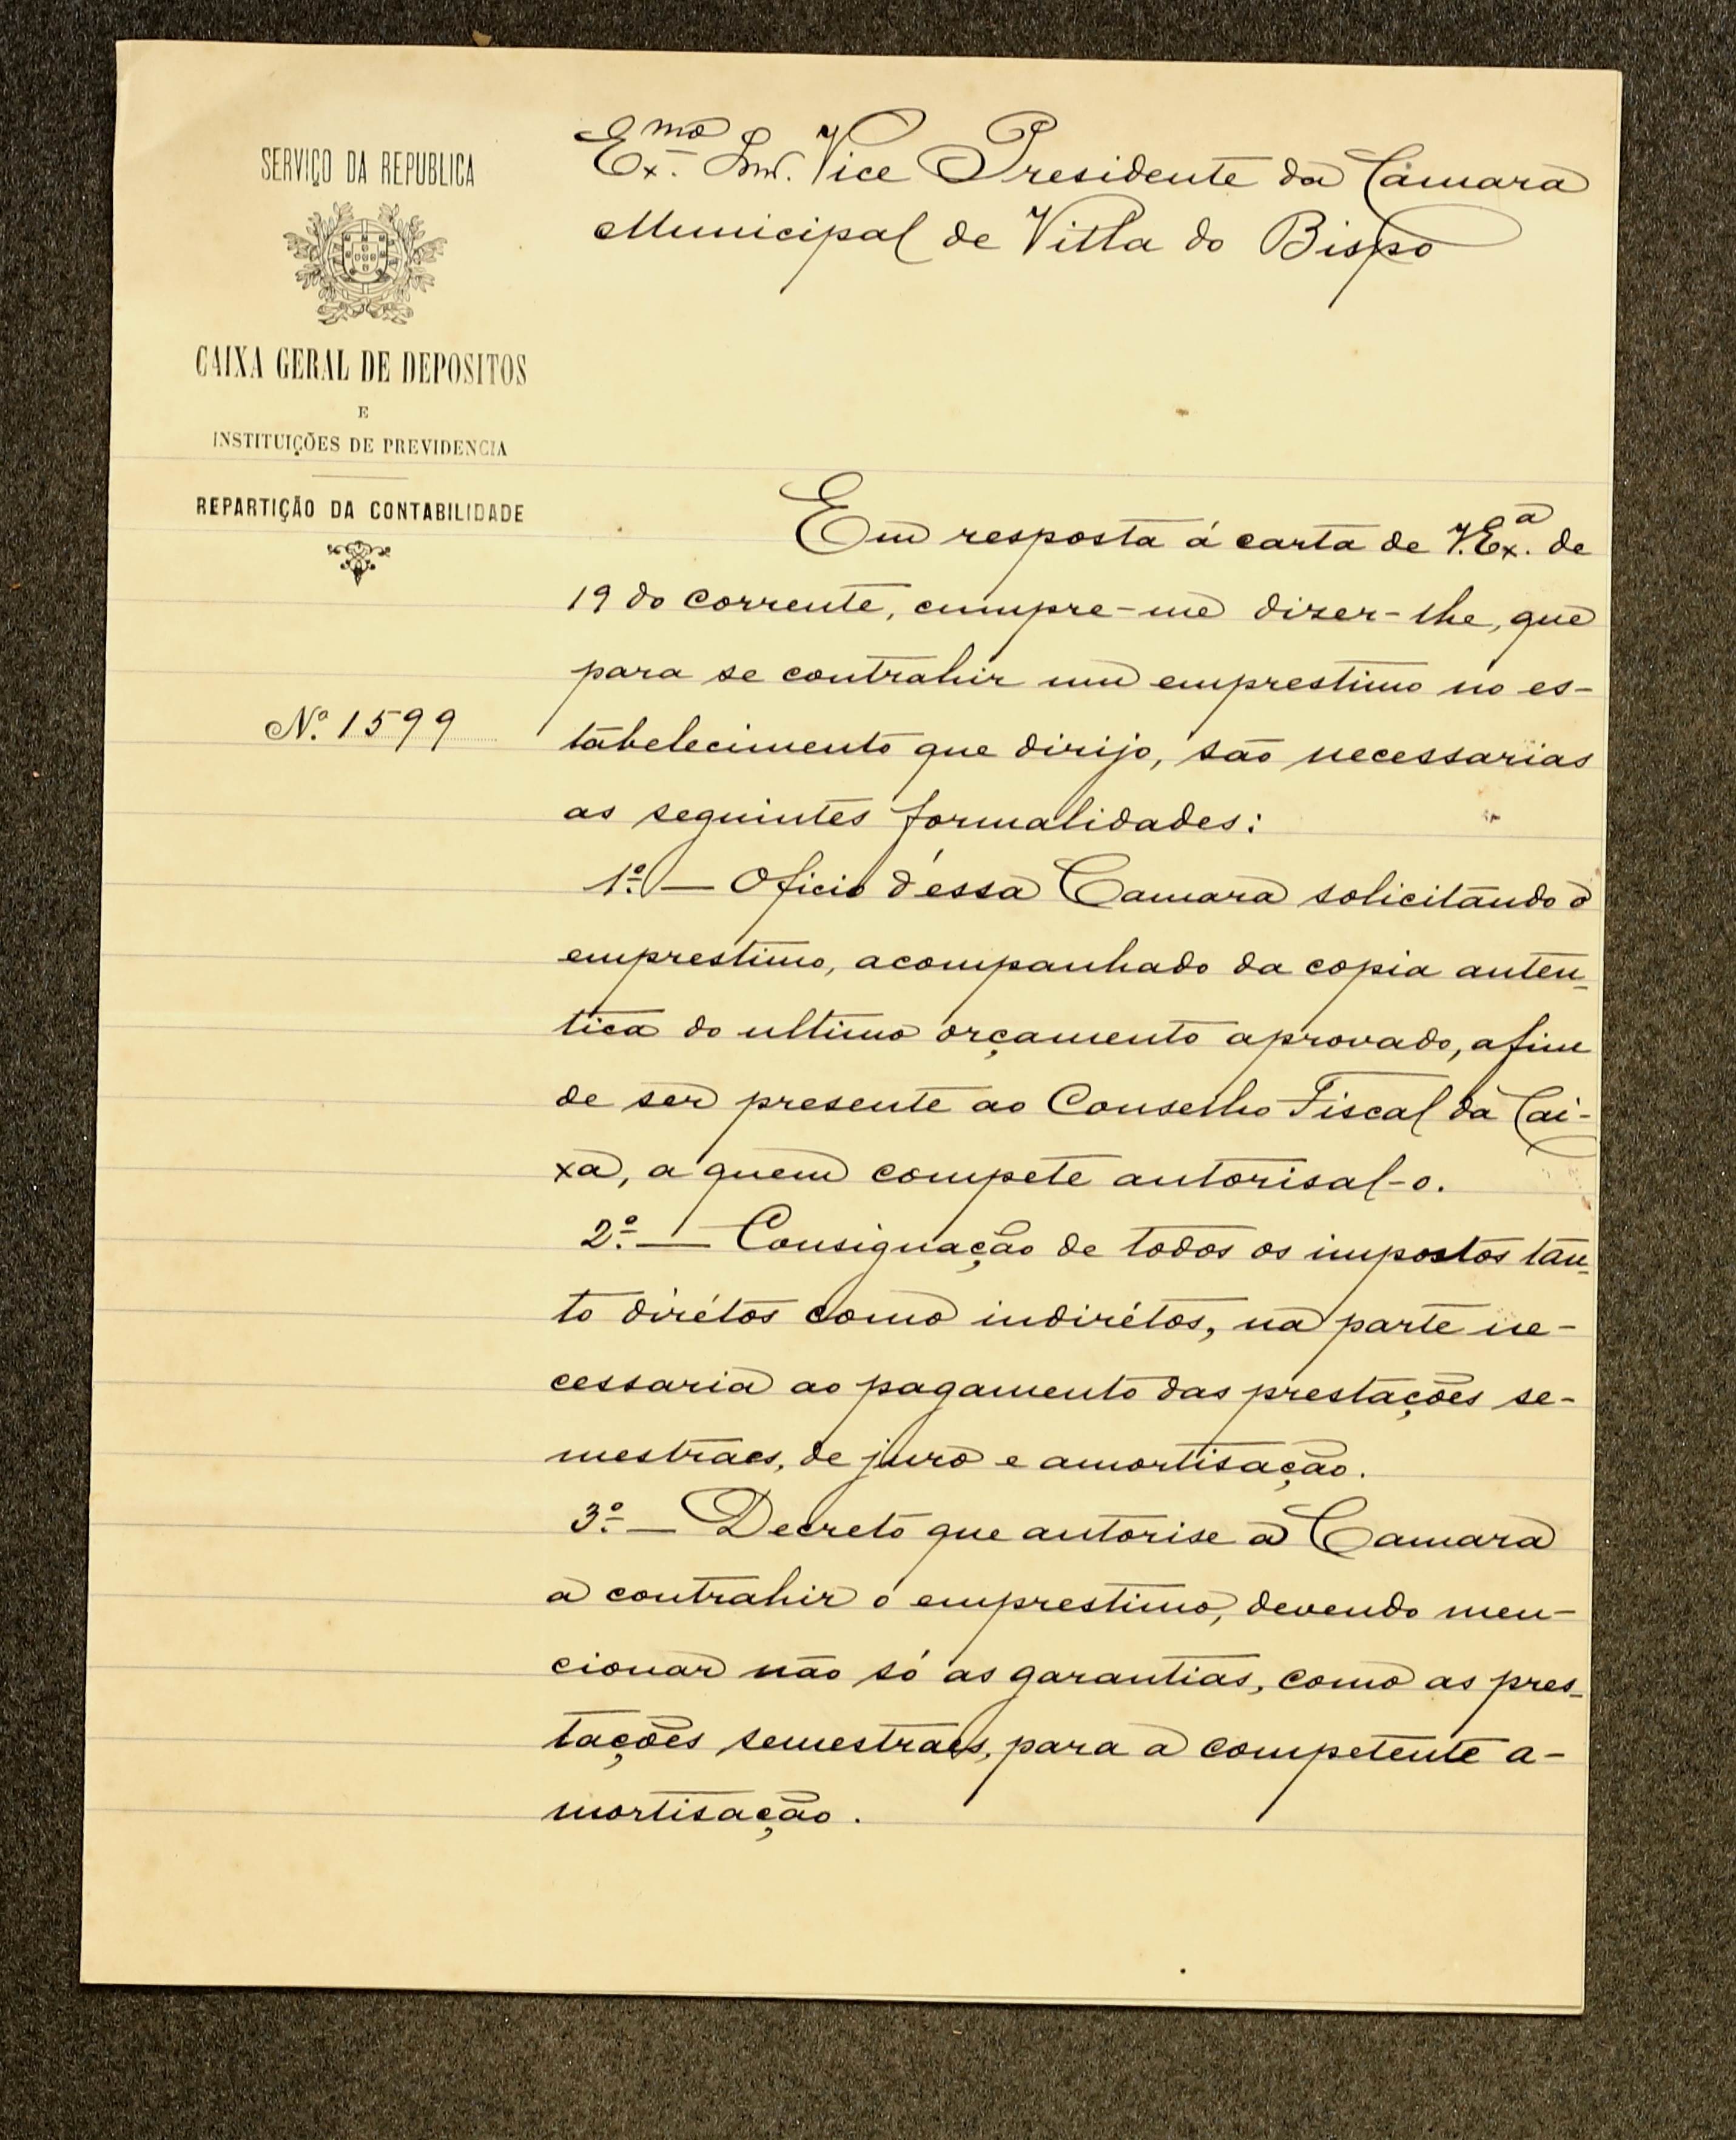 SERVIÇO DA REPUBLICA
CAIXA GERAL DE DEPOSITOS
E
INSTITUIÇÕES DE PREVIDENCIA
REPARTIÇÃO DA CONTABILIDADE
Nº 1599
Exmo Snr. Vice Presidente da Camara
Municipal de Villa do Bispo
Em resposta á carta de V. Exª. de
19 do corrente, cumpre-me dizer-lhe, que
para se contrahir um emprestimo no es-
tabelecimento que dirijo, são necessarias
as seguintes formalidades:
1º — Oficio d'essa Camara solicitando o
emprestimo, acompanhado da copia auten-
tica do ultimo orçamento aprovado, afim
de ser presente ao Conselho Fiscal da Cai-
xa, a quem compete autorisal-o.
2º — Consignação de todos os impostos tan-
to dirétos como indirétos, na parte ne-
cessaria ao pagamento das prestações se-
mestraes, de juro e amortisação.
3º — Decreto que autorise a Camara
a contrahir o emprestimo, devendo men-
cionar não só as garantias, como as pres-
tações semestraes, para a competente a-
mortisação.